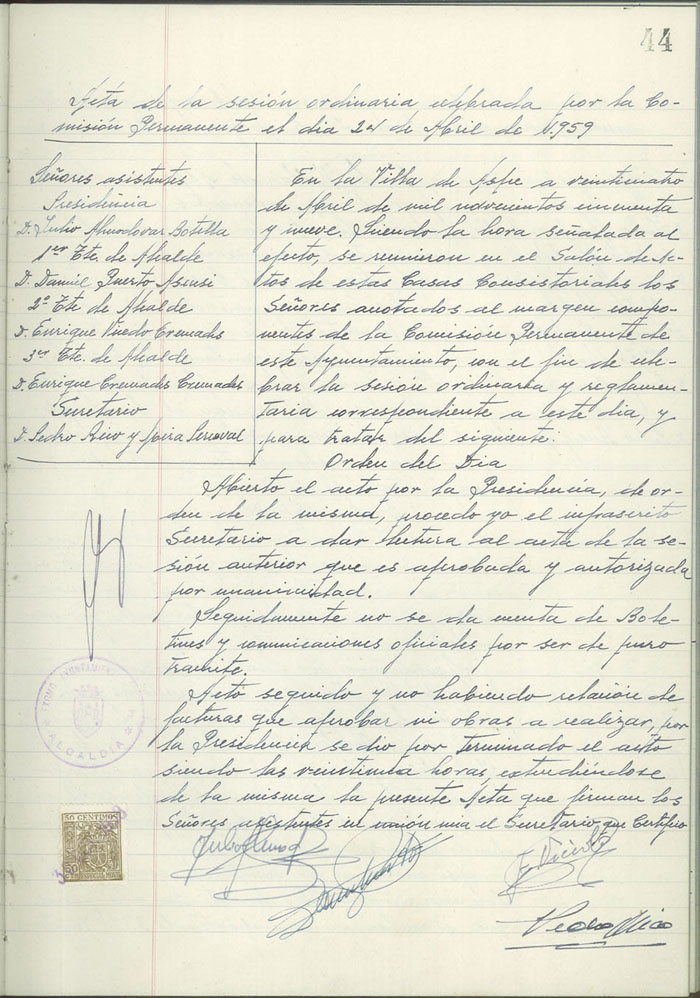 44
Acta de la sesión ordinaria celebrada por la Co-
misión Permanente el dia 24 de Abril de 1.959
Señores asistentes
Presidencia
D. Julio Almodovar Botella
1er Tte. de Alcalde
D. Daniel Puerto Asensi
2º Tte de Alcalde
D. Enrique Cremades
3er Tte. de Alcalde
D. Enrique Cremades Cremades
Secretario
D. Pedro Rico y Mira
En la Villa de Aspe a veinticuatro
de Abril de mil novecientos cincuenta
y nueve. Siendo la hora señalada al
efecto, se reunieron en el Salón de Ac-
tos de estas Casas Consistoriales los
Señores anotados al margen compo-
nentes de la Comisión Permanente de
este Ayuntamiento, con el fin de cele-
brar la sesión ordinaria y reglamen-
taria correspondiente a este dia, y
para tratar del siguiente:
Orden del Dia
Abierto el acto por la Presidencia, de or-
den de la misma, procedo yo el infrascrito
Secretario a dar lectura al acta de la se-
sión anterior que es aprobada y autorizada
por unanimidad.
Seguidamente no se da cuenta de Bole-
tines y comunicaciones oficiales por ser de puro
tramite.
Acto seguido y no habiendo relación de
facturas que aprobar ni obras a realizar, por
la Presidencia se dio por terminado el acto
siendo las horas, extendiéndose
de la misma la presente Acta que firman los
Señores asistentes en unión mia el Secretario, que Certifico
AYUNTAMIENTO
ALCALDÍA
50 CENTIMOS
Pedro Rico